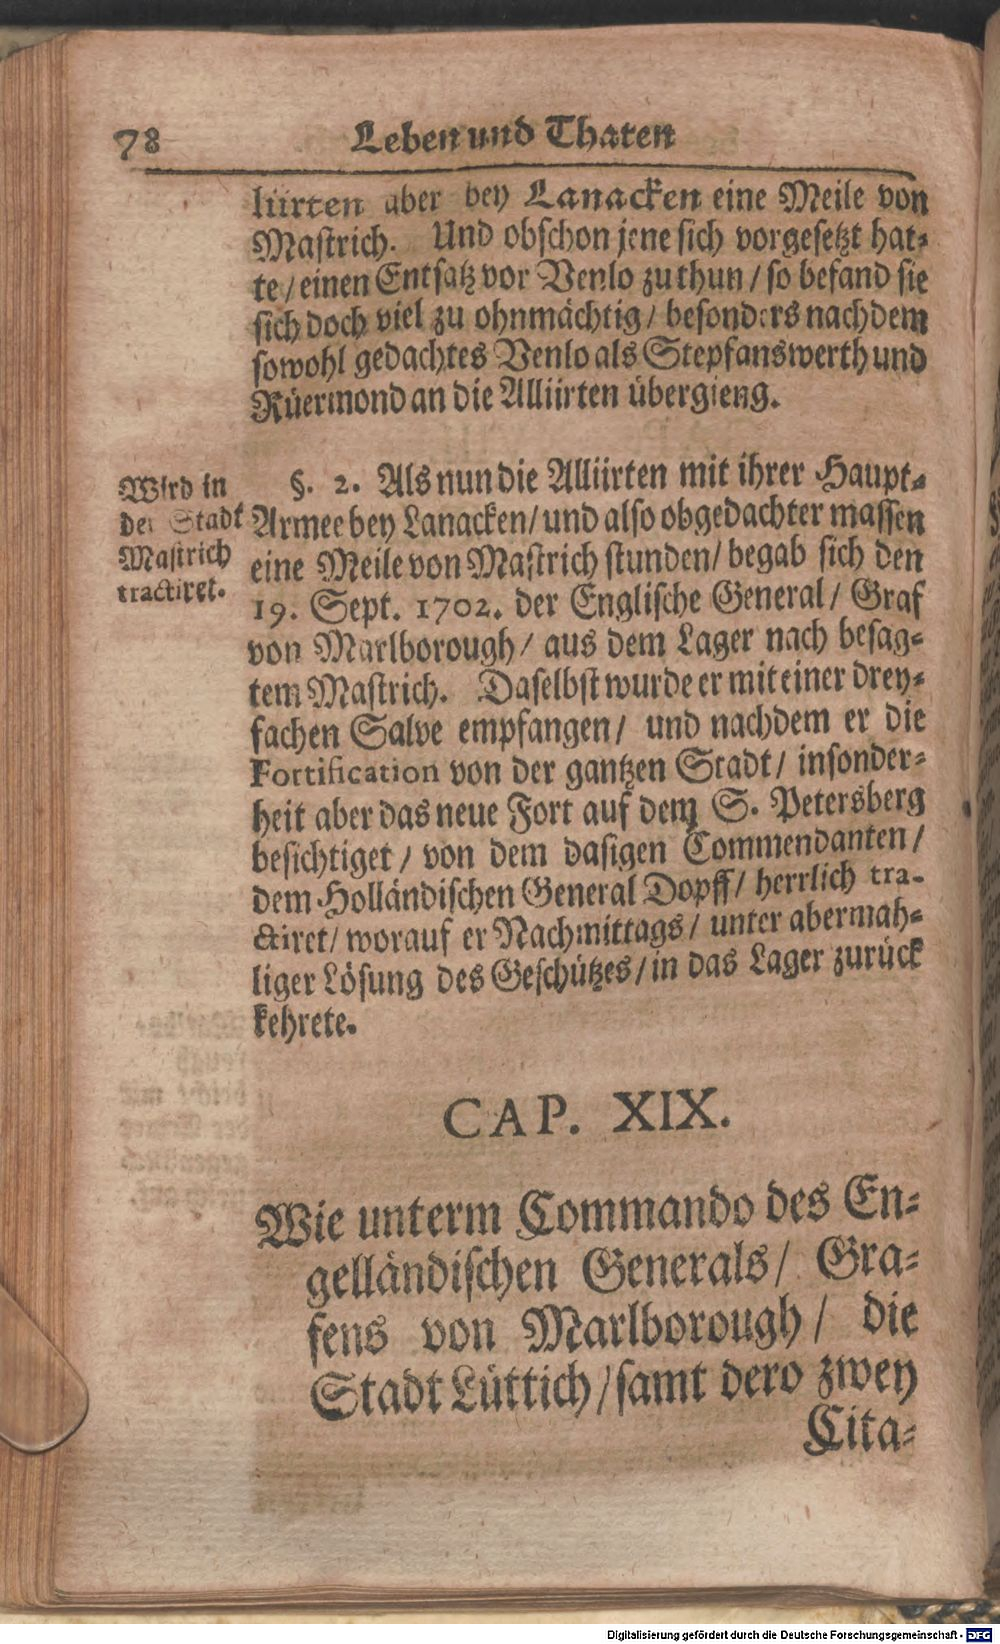 78 Leben und Thaten
liirten aber bey Lanacken eine Meile von
Mastrich. Und obschon jene sich vorgesetzt hat-
te / einen Entsatz vor Venlo zu thun / so befand sie
sich doch viel zu ohnmächtig / besonders nachdem
sowohl gedachtes Venlo als Stepfanswerth und
Rüermond an die Alliirten übergieng.
Wird in
der Stadt
Mastrich
tractiret.
§. 2. Als nun die Alliirten mit ihrer Haupt-
Armee bey Lanacken / und also obgedachter massen
eine Meile von Mastrich stunden / begab sich den
19. Sept. 1702. der Englische General / Graf
von Marlborough / aus dem Lager nach besag-
tem Mastrich. Daselbst wurde er mit einer drey-
fachen Salve empfangen / und nachdem er die
Fortification von der gantzen Stadt / insonder-
heit aber das neue Fort auf dem S. Petersberg
besichtiget / von dem dasigen Commendanten /
dem Holländischen General Dopff / herrlich tra-
ctiret / worauf er Nachmittags / unter abermah-
liger Lösung des Geschützes / in das Lager zurück
kehrete.
CAP. XIX.
Wie unterm Commando des En-
gelländischen Generals / Gra-
fens von Marlborough / die
Stadt Lüttich / samt dero zwey
Cita-
Digitalisierung gefördert durch die Deutsche Forschungsgemeinschaft - DFG